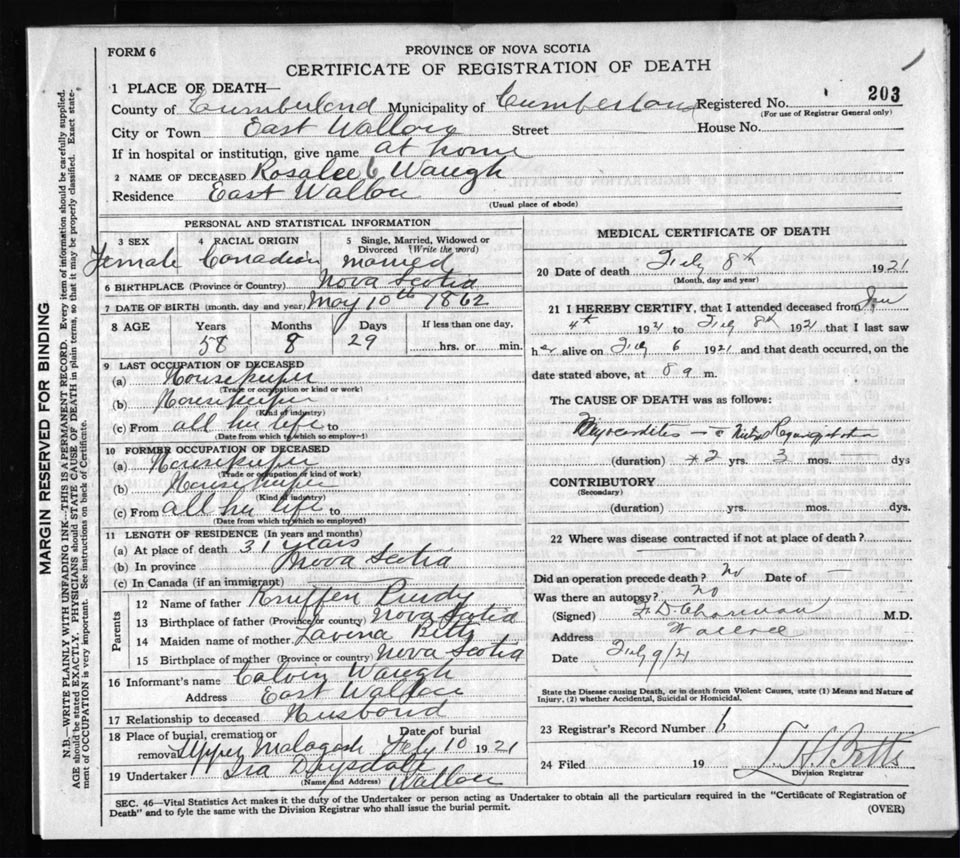 FORM 6
PROVINCE OF NOVA SCOTIA
CERTIFICATE OF REGISTRATION OF DEATH
1 PLACE OF DEATH—
County of Cumberland Municipality of Cumberland Registered No. 203
(For use of Registrar General only)
City or Town East Wallace Street House No.
If in hospital or institution, give name at home
2 NAME OF DECEASED Rosalee C Waugh
Residence East Wallace
(Usual place of abode)
PERSONAL AND STATISTICAL INFORMATION
3 SEX 4 RACIAL ORIGIN 5 Single, Married, Widowed or Divorced (Write the word)
Female Canadian Married
6 BIRTHPLACE (Province or Country) Nova Scotia
7 DATE OF BIRTH (month, day and year) May 10th 1862
8 AGE Years Months Days If less than one day,
58 8 29 hrs. or min.
9 LAST OCCUPATION OF DECEASED
(a) Housekeeper
(Trade or occupation or kind of work)
(b) Housekeeper
(Kind of industry)
(c) From all her life to
(Date from which to which so employed)
10 FORMER OCCUPATION OF DECEASED
(a) Housekeeper
(Trade or occupation of kind of work)
(b) Housekeeper
(Kind of industry)
(c) From all her life to
(Date from which to which so employed)
11 LENGTH OF RESIDENCE (In years and months)
(a) At place of death 31 years
(b) In province Nova Scotia
(c) In Canada (if an immigrant)
Parents
12 Name of father Kniffen Purdy
13 Birthplace of father (Province or country) Nova Scotia
14 Maiden name of mother Lavina Betts
15 Birthplace of mother (Province or country) Nova Scotia
16 Informant's name Calvin Waugh
Address East Wallace
17 Relationship to deceased Husband
18 Place of burial, cremation or Date of burial
removal Upper Malagash Feby 10 1921
19 Undertaker Ira Drysdale
(Name and Address) Wallace
MEDICAL CERTIFICATE OF DEATH
20 Date of death Feby 8th 1921
(Month, day and year)
21 I HEREBY CERTIFY, that I attended deceased from Jan
4th 1921 to Feby 8th 1921 that I last saw
her alive on Feby 6 1921 and that death occurred, on the
date stated above, at 8 a m.
The CAUSE OF DEATH was as follows:
Myocarditis — Mitral Regurgitation
(duration) 2 yrs. 3 mos. dys
CONTRIBUTORY
(Secondary)
(duration) yrs. mos. dys.
22 Where was disease contracted if not at place of death?
Did an operation precede death? No Date of —
Was there an autopsy? No
(Signed) F. D. Charman M.D.
Address Wallace
Date Feby 9/21
State the Disease causing Death, or in death from Violent Causes, state (1) Means and Nature of
Injury, (2) whether Accidental, Suicidal or Homicidal.
23 Registrar's Record Number 6
24 Filed 19 L. H. Betts
Division Registrar
SEC. 46—Vital Statistics Act makes it the duty of the Undertaker or person acting as Undertaker to obtain all the particulars required in the "Certificate of Registration of
Death" and to fyle the same with the Division Registrar who shall issue the burial permit.
(OVER)
MARGIN RESERVED FOR BINDING
N.B.—WRITE PLAINLY WITH UNFADING INK—THIS IS A PERMANENT RECORD. Every item of information should be carefully supplied.
AGE should be stated EXACTLY. PHYSICIANS should STATE CAUSE OF DEATH in plain terms, so that it may be properly classified. Exact state-
ment of OCCUPATION is very important. See instructions on back of Certificate.